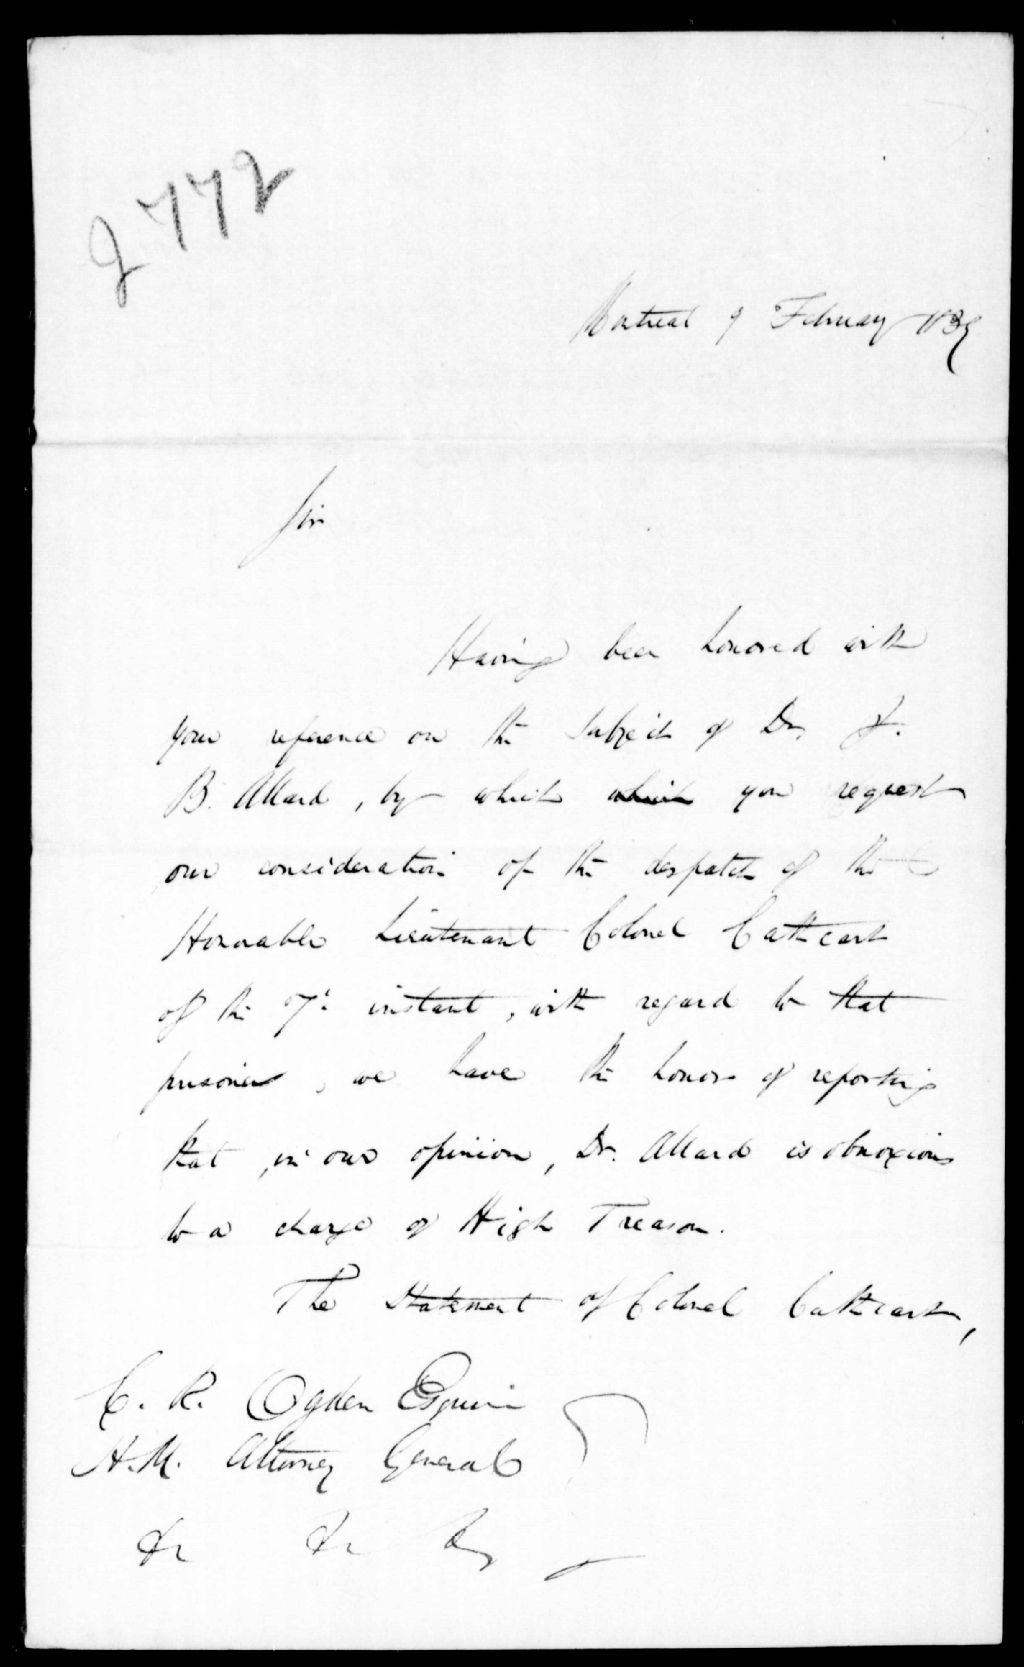 2772
Montreal 9 February 1839
Sir
Having been honored with
your reference on the subject of Dr. J.
B. Allard, by which which you request
our consideration of the despatch of the
Honorable Lieutenant Colonel Cathcart
of the 7th instant, with regard to that
prisoner, we have the honor of reporting
that, in our opinion, Dr. Allard is obnoxious
to a charge of High Treason.
The Statement of Colonel Cathcart,
C. R. Ogden Esquire
H. M. Attorney General
&c &c &c